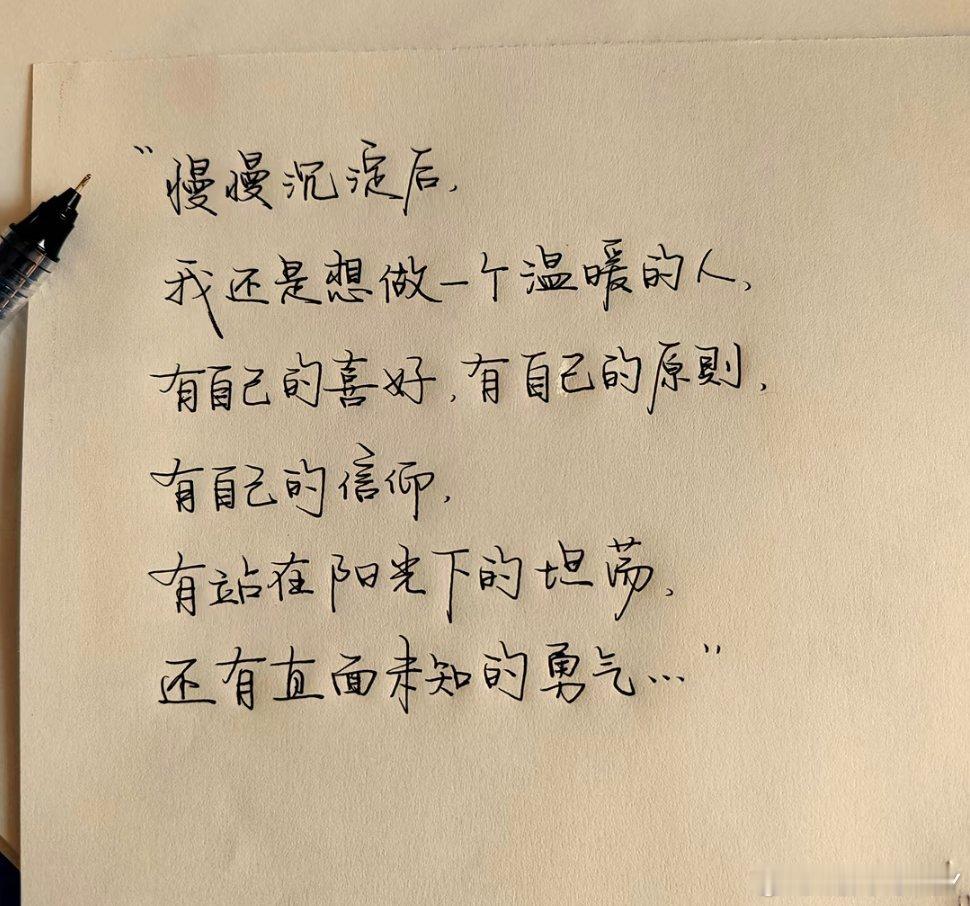 “慢慢沉淀后,
我还是想做一个温暖的人,
有自己的喜好,有自己的原则,
有自己的信仰,
有站在阳光下的坦荡,
还有直面未知的勇气...”